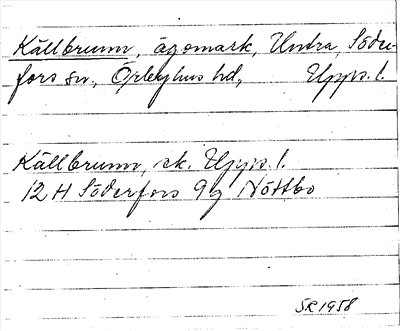 Källbrunn, ägomark, Untra, Söder-
fors sn, Örbyhus hd, Upps. l.
Källbrunn, ek. Upps. l.
12 H Söderfors 9g Nöttbo
SR 1958